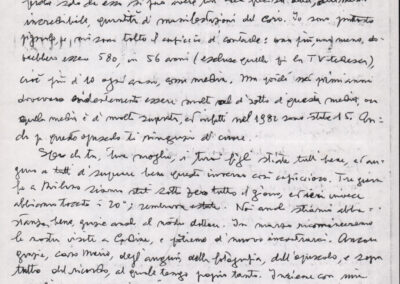 incredibile, quantità di manifestazioni del coro. Io sono piuttosto
pignolo, e mi sono tolto il capriccio di contarle: una più una meno, do-
vrebbero essere 580, in 56 anni (escluse quelle per la TV tedesca),
cioè più di 10 ogni anno, come media. Ma poiché nei primi anni
dovevano evidentemente essere molto al di sotto di questa media, ora
quella media è di molto superata, ed infatti nel 1982 sono state 15. An-
che per questo opuscolo ti ringrazio di cuore.
Spero che tu, tua moglie, i tuoi figli stiate tutti bene, ed au-
guro a tutti di superare bene questo inverno così capriccioso. Tre giorni
fa a Milano siamo stati sotto zero tutto il giorno, ed ieri invece
abbiamo toccato i 20°; sembrava estate. Noi anche stiamo abba-
stanza bene, grazie anche al nostro dottore. In marzo ricominceremo
le nostre visite a, e potremo di nuovo incontrarci. Ancora
grazie, caro Mario, degli auguri, della fotografia, dell'opuscolo, e sopra
tutto del ricordo, al quale tengo proprio tanto. Insieme con mia